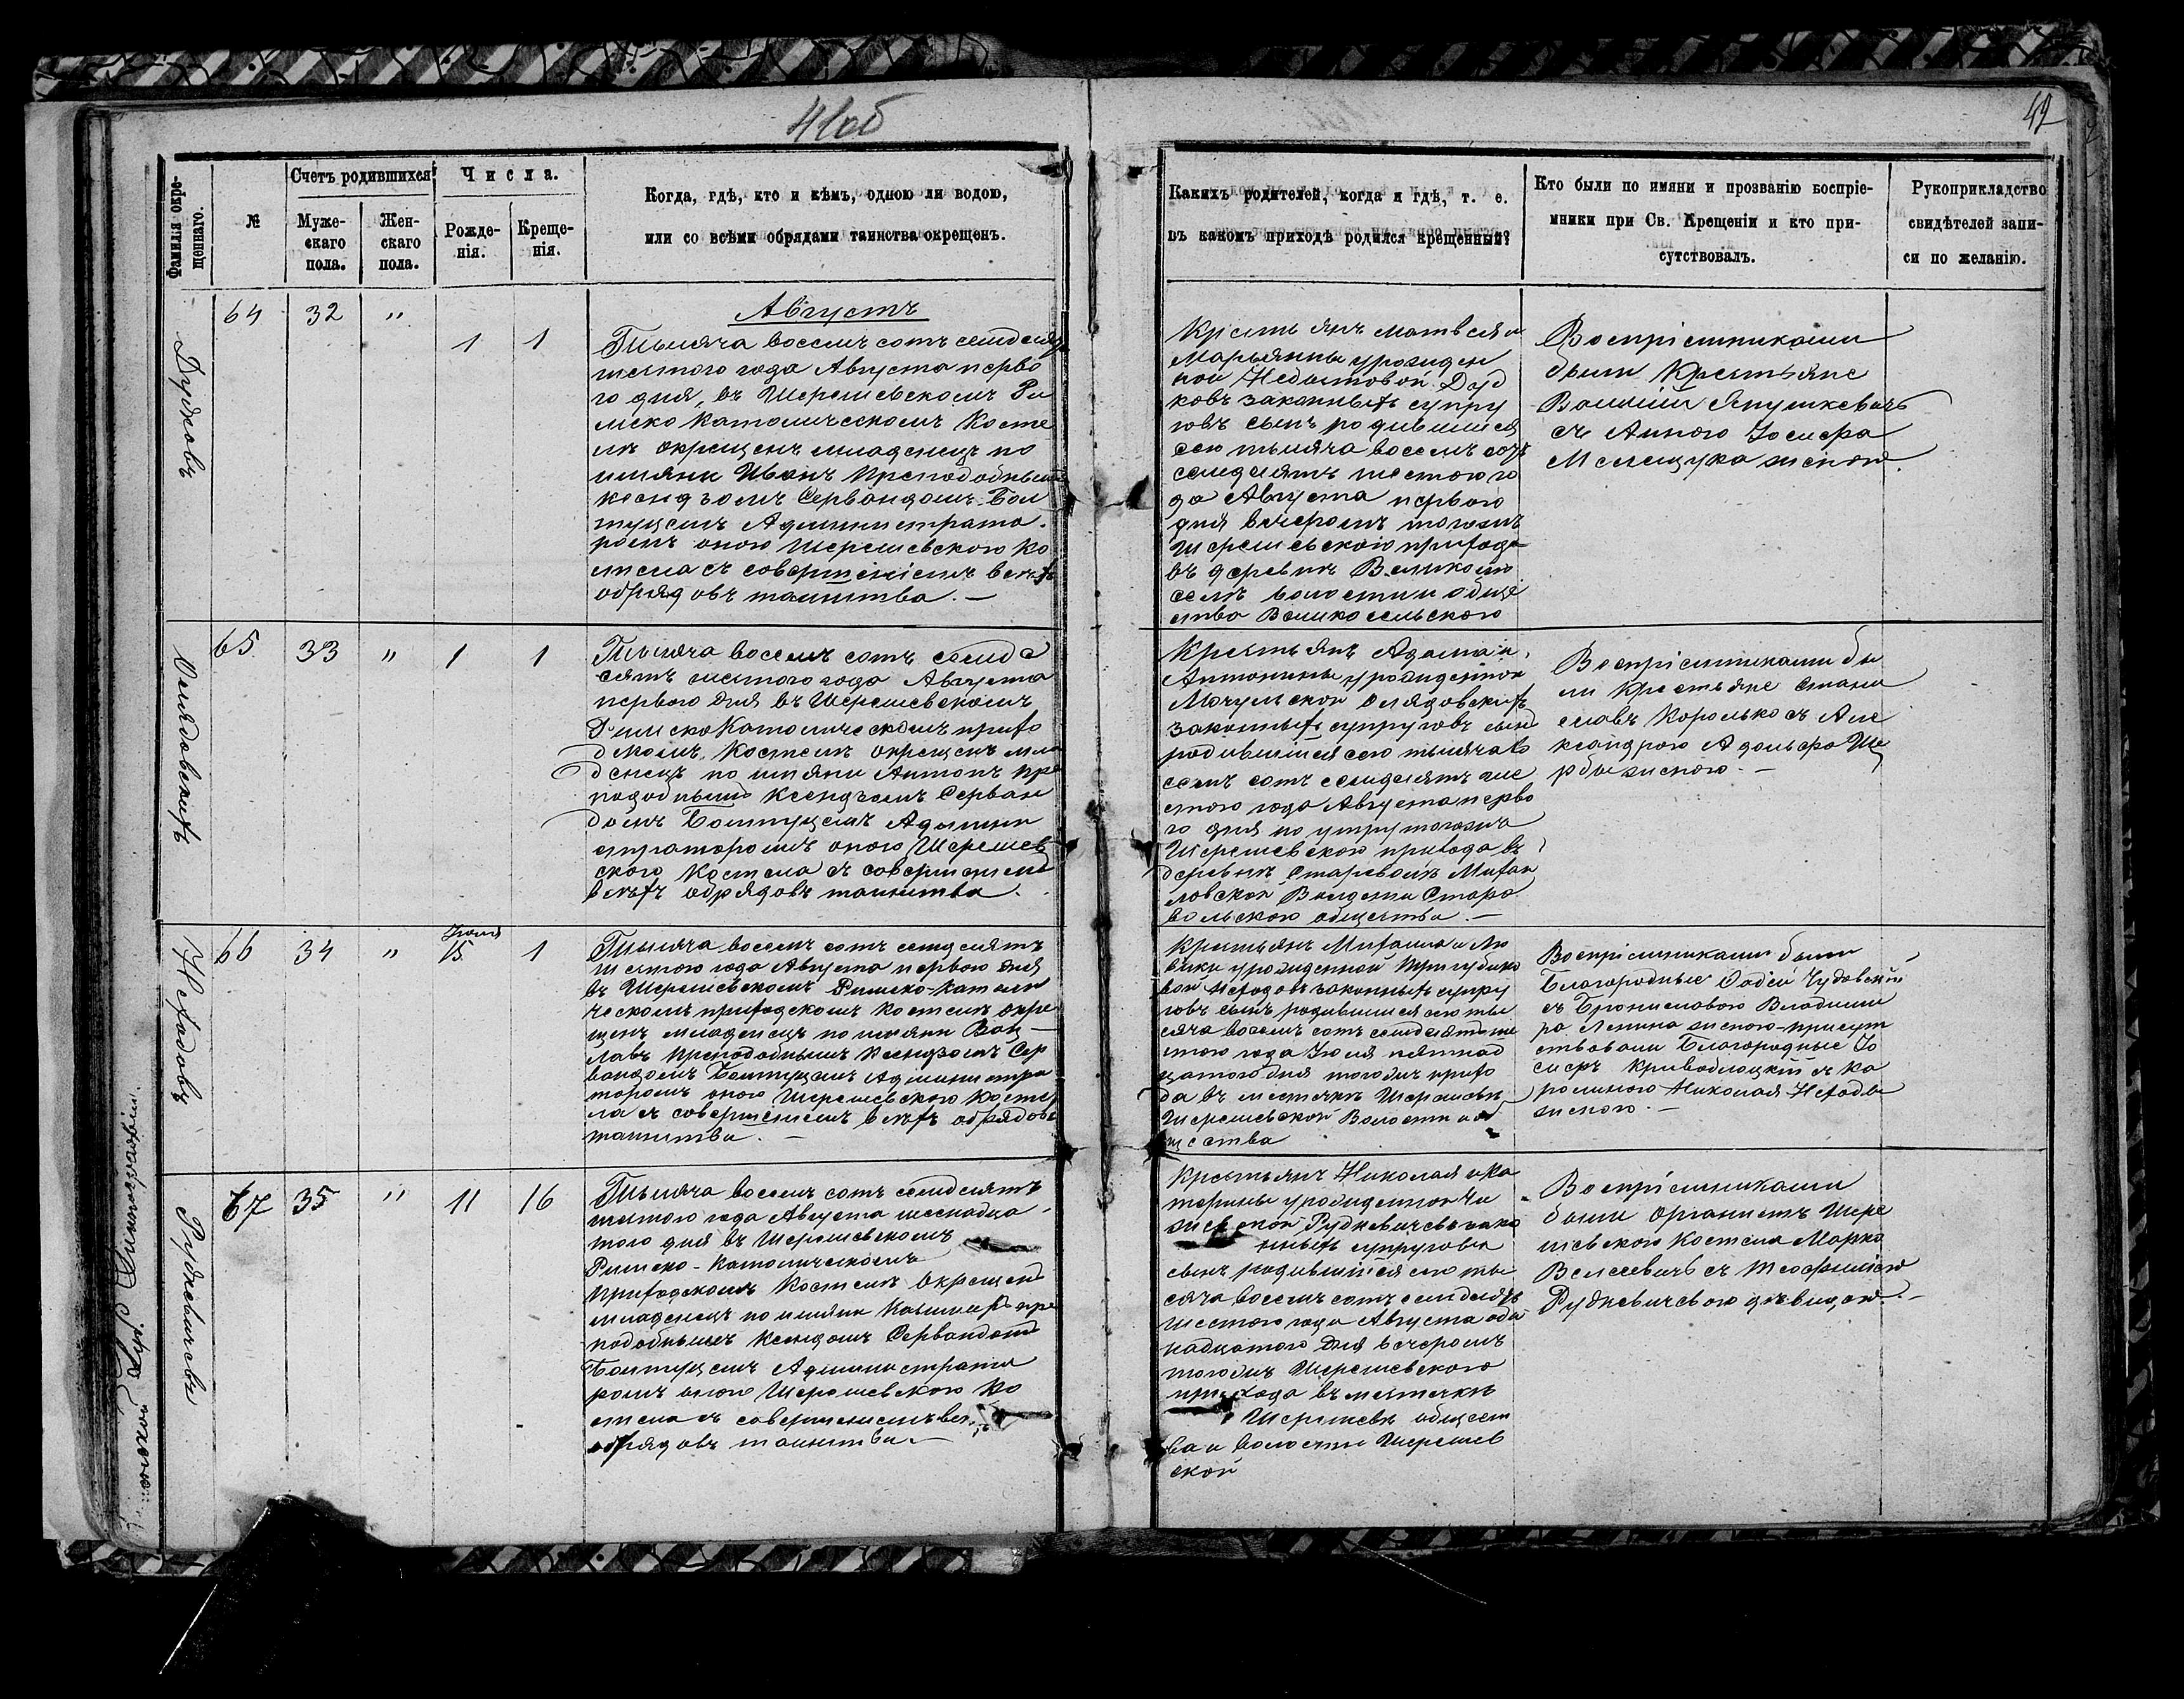 41об
42
Фамилія окре-
щеннаго.
№
Счетъ родившихся
Муже-
скаго
пола.
Жен-
скаго
пола.
Числа.
Рожде-
нія.
Креще-
нія.
Когда, гдѣ, кто и кѣмъ, одною ли водою,
или со всѣми обрядами таинства окрещенъ.
Какихъ родителей, когда и гдѣ, т. е.
въ какомъ приходѣ родился крещенный?
Кто были по имяни и прозванію воспріе-
мники при Св. Крещеніи и кто при-
сутствовалъ.
Рукоприкладство
свидѣтелей запи-
си по желанію.
Дудковъ
64
32
"
1
1
Августъ
Тысяча восемъ сотъ семдесятъ
шестого года Августа перво
го дня, въ Шерешевскомъ Ри
мско Католическомъ Косте
лѣ окрещенъ младенецъ по
имяни Иванъ Преподобнымъ
ксендзомъ Сервандомъ Бол
туцемъ Администрато
ромъ оного Шерешевского Ко
стела съ совершеніемъ всѣхъ
обрядовъ таинства. —
Крестьянъ Матвея и
Марьянны урожден
ной Дуд
ковъ законныхъ супру
говъ сынъ родившийся
сего тысяча восемъ сотъ
семдесятъ шестого го
да Августа первого
дня вечеромъ тогожъ
Шерешевского прихода
въ деревнѣ Великомъ
селѣ волости и обще
ства Великосельского
Воспріемниками
были Крестьяне
Янушкевичъ
съ Анною Іосифа
Мелещука женою.
Оглядовскихъ
65
33
"
1
1
Тысяча восемъ сотъ семде
сятъ шестого года Августа
первого дня въ Шерешевскомъ
Римско Католическомъ прихо
дскомъ Костелѣ окрещенъ мла
денецъ по имяни Антонъ пре
подобнымъ Ксендзомъ Серван
домъ Болтуцемъ Админи
страторомъ оного Шерешев
ского Костела съ совершеніемъ
всѣхъ обрядовъ таинства.
Крестьянъ Адама и
Антонины урожденной
законныхъ супруговъ сынъ
родившийся сего тысяча во
семъ сотъ семдесятъ ше
стого года Августа перво
го дня по утру тогожъ
Шерешевского прихода въ
деревнѣ Староволѣ Михай
ловской Волости Старо
вольского общества. —
Воспріемниками бы
ли Крестьяне Стани
славъ Королько съ Але
ксандрою Адольфа Ще
рбы женою. —
Нефодовъ
66
34
"
Іюля
15
1
Тысяча восемъ сотъ семдесятъ
шестого года Августа первого дня
въ Шерешевскомъ Римско-Католи
ческомъ приходскомъ Костелѣ окре
щенъ младенецъ по имяни Вац-
лавъ Преподобнымъ Ксендзомъ Сер
вандомъ Болтуцемъ Администра
торомъ оного Шерешевского Косте
ла съ совершеніемъ всѣхъ обрядовъ
таинства. —
Крестьянъ Михаила и Лю
вики урожденной Тригубико
вой Нефодовъ законныхъ супру
говъ сынъ родившийся сего ты
сяча восемъ сотъ семдесятъ ше
стого года Іюля пятнад
цатого дня тогожъ прихо
да въ мѣстечкѣ Шерешевѣ
Шерешевской Волости и об
щества
Воспріемниками были
Благородные Чудовскій
съ Брониславою Владими
ра Ленина женою - присут
ствовали Благородные Іо
сифъ Кривоблоцкій съ Ка
ролиною Николая Нефода
женою. —
Рудкевичевъ
67
35
"
11
16
Тысяча восемъ сотъ семдесятъ
шестого года Августа шеснадца
того дня въ Шерешевскомъ
Римско-Католическомъ
Приходскомъ Костелѣ Окрещенъ
младенецъ по имяни Казимиръ пре
подобнымъ Ксендзомъ Сервандомъ
Болтуцемъ Администрато
ромъ оного Шерешевского Ко
стела съ совершеніемъ всѣхъ
обрядовъ таинства. —
Крестьянъ Николая и Ка
терины урожденной
Рудкевичевъ зако
нныхъ супруговъ
сынъ родившийся сего ты
сяча восемъ сотъ семдесятъ
шестого года Августа оди
надцатого дня вечеромъ
тогожъ Шерешевского
прихода въ мѣстечкѣ
Шерешевѣ общест
ва и волости Шерешев
ской
Воспріемниками
были Органистъ Шере
шевского Костела Марко
съ Теофилією
Рудкевичевою дѣвицею. —